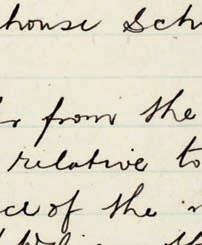 house Sch
from the
relative to
of the